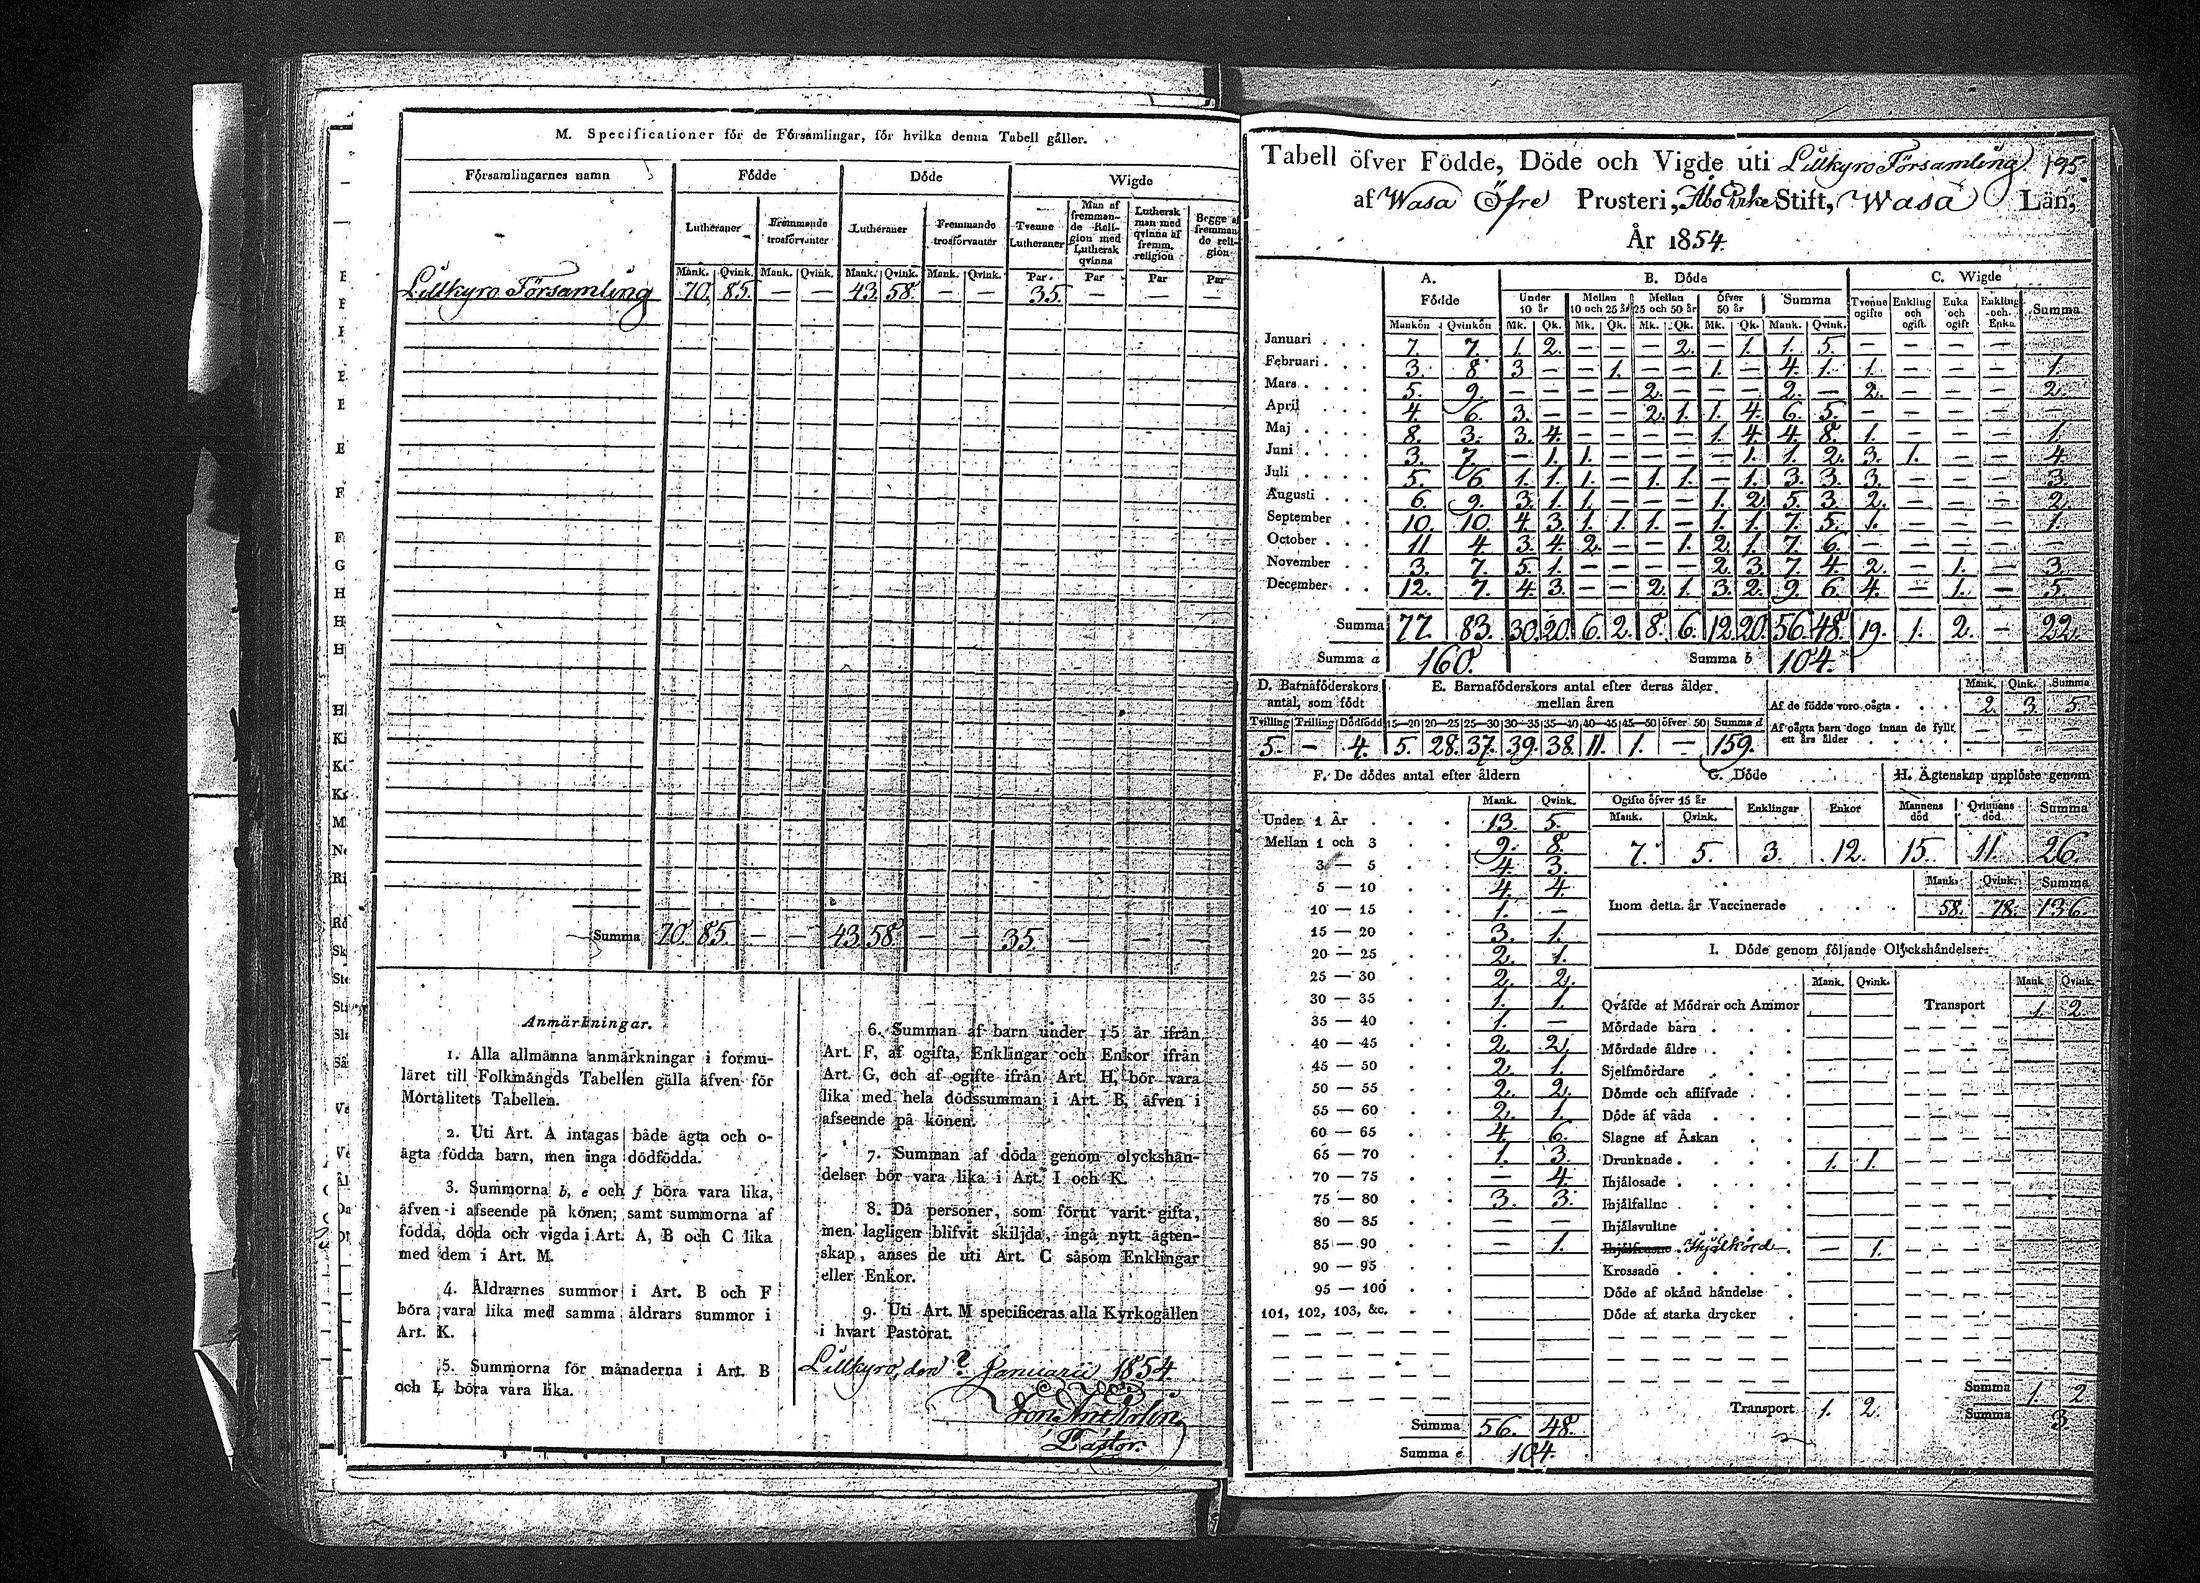 M. Specificationer för de Församlingar, för hvilka denna Tabell gäller.
Församlingarnes namn Födde Döde Wigde
Lutheraner Fremmande trosförvanter Lutheraner Fremmande trosförvanter Tvenne Lutheraner Man af fremmande Religion med Luthersk qvinna Luthersk man med qvinna af fremm. religion Begge af fremmande religion
Mank. Qvink. Mank. Qvink. Mank. Qvink. Mank. Qvink. Par Par Par Par
Lillkyro Församling 70. 85. — — 43. 58. — — 35. — — —
Summa 70. 85. — — 43. 58. — — 35. — — —
Anmärkningar.
1. Alla allmänna anmärkningar i formu-
läret till Folkmängds Tabellen gälla äfven för
Mortalitets Tabellen.
2. Uti Art. A intagas både ägta och o-
ägta födda barn, men inga dödfödda.
3. Summorna b, e och f böra vara lika,
äfven i afseende på könen; samt summorna af
födda, döda och vigda i Art. A, B och C lika
med dem i Art. M.
4. Åldrarnes summor i Art. B och F
böra vara lika med samma åldrars summor i
Art. K.
5. Summorna för månaderna i Art. B
och L böra vara lika.
6. Summan af barn under 15 år ifrån
Art. F, af ogifta, Enklingar och Enkor ifrån
Art. G, och af ogifte ifrån Art. H, bör vara
lika med hela dödssumman i Art. B, äfven i
afseende på könen.
7. Summan af döda genom olyckshän-
delser bör vara lika i Art. I och K.
8. Då personer, som förut varit gifta,
men lagligen blifvit skiljda, ingå nytt ägten-
skap, anses de uti Art. C såsom Enklingar
eller Enkor.
9. Uti Art. M specificeras alla Kyrkogällen
i hvart Pastorat.
Lillkyro, den Januarii 1854
Pastor.
Tabell öfver Födde, Döde och Vigde uti Lillkyro Församling 195.
af Wasa Öfre Prosteri, Åbo Erke Stift, Wasa Län,
År 1854.
A. B. Döde C. Wigde
Födde Under 10 år Mellan 10 och 25 år Mellan 25 och 50 år Öfver 50 år Summa Tvenne ogifte Enkling och ogift Enka och ogift Enkling och Enka Summa
Mankön Qvinkön Mk. Qk. Mk. Qk. Mk. Qk. Mk. Qk. Mank. Qvink.
Januari 7. 7. 1. 2. — — — 2. — 1. 1. 5. — — — —
Februari 3. 8. 3. — — 1. — — 1. — 4. 1. 1. — — — 1.
Mars 5. 9. — — — — 2. — — — 2. — 2. — — — 2.
April 4. 6. 3. — — — 2. 1. 1. 4. 6. 5. — — — — —
Maj 8. 3. 3. 4. — — — — 1. 4. 4. 8. 1. — — — 1.
Juni 3. 7. — 1. 1. — — — — 1. 1. 2. 3. 1. — — 4.
Juli 5. 6. 1. 1. 1. — 1. 1. — 1. 3. 3. 3. — — — 3.
Augusti 6. 9. 3. 1. 1. — — — 1. 2. 5. 3. 2. — — — 2.
September 10. 10. 4. 3. 1. 1. 1. — 1. 1. 7. 5. 1. — — — 1.
October 11 4. 3. 4. 2. — — 1. 2. 1. 7. 6. — — — — —
November 3. 7. 5. 1. — — — — 2. 3. 7. 4. 2. — 1. — 3.
December 12. 7. 4. 3. — — 2. 1. 3. 2. 9. 6. 4. — 1. — 5.
Summa 77. 83. 30. 20. 6. 2. 8. 6. 12. 20. 56. 48. 19. 1. 2. — 22.
Summa a 160. Summa b 104.
D. Barnaföderskors antal, som födt E. Barnaföderskors antal efter deras ålder mellan åren
Mank. Qink. Summa
Af de födde voro oägta 2. 3. 5.
Tvilling Trilling Dödfödd 15—20 20—25 25—30 30—35 35—40 40—45 45—50 öfver 50 Summa d
5. — 4. 5. 28. 37. 39. 38. 11. 1. — 159.
Af oägta barn dogo innan de fyllt ett års ålder — — —
F. De dödes antal efter åldern
Mank. Qvink.
Under 1 År 13. 5.
Mellan 1 och 3 9. 8.
3 — 5 4. 3.
5 — 10 4. 4.
10 — 15 1. —
15 — 20 3. 1.
20 — 25 2. 1.
25 — 30 2. 2.
30 — 35 1. 1.
35 — 40 1. —
40 — 45 2. 2.
45 — 50 2. 1.
50 — 55 2. 2.
55 — 60 2. 1.
60 — 65 4. 6.
65 — 70 1. 3.
70 — 75 — 4.
75 — 80 3. 3.
80 — 85 — —
85 — 90 — 1.
90 — 95
95 — 100
101, 102, 103, &c.
Summa 56. 48.
Summa e 104.
G. Döde H. Ägtenskap upplöste genom
Ogifte öfver 15 år Enklingar Enkor Mannens död Qvinnans död Summa
Mank. Qvink.
7. 5. 3. 12. 15. 11. 26.
Mank. Qvink. Summa
Inom detta år Vaccinerade 58. 78. 136.
I. Döde genom följande Olyckshändelser:
Mank. Qvink. Mank. Qvink.
Qväfde af Mödrar och Ammor Transport 1. 2.
Mördade barn
Mördade äldre
Sjelfmördare
Dömde och aflifvade
Döde af våda
Slagne af Åskan
Drunknade 1. 1.
Ihjälosade
Ihjälfallne
Ihjälsvultne
Ihjälfrusne Ihjälkörd — 1.
Krossade
Döde af okänd händelse
Döde af starka drycker
Summa 1. 2
Transport 1. 2. Summa 3